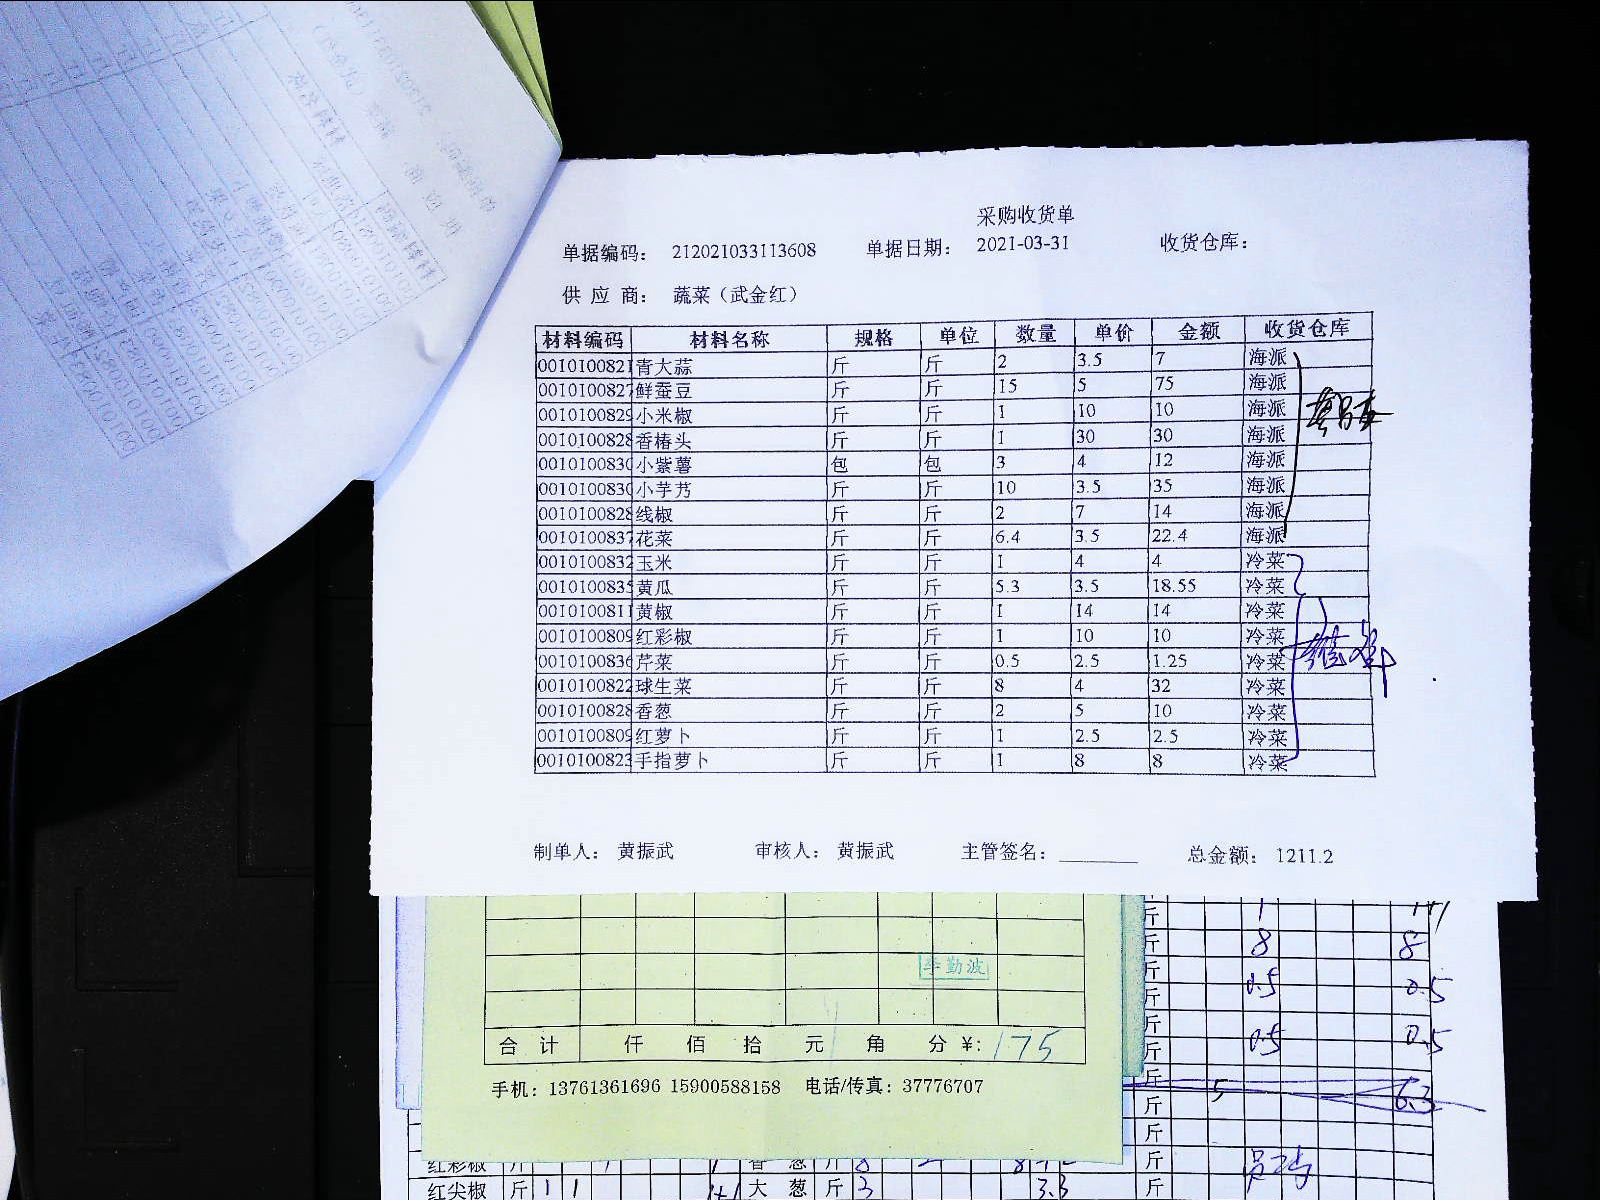 采购收货单
单据编码： 212021033113608 单据日期： 2021-03-31 收货仓库：
供 应 商： 蔬菜（武金红）
材料编码 材料名称 规格 单位 数量 单价 金额 收货仓库
0010100821 青大蒜 斤 斤 2 3.5 7 海派
0010100827 鲜蚕豆 斤 斤 15 5 75 海派
0010100829 小米椒 斤 斤 1 10 10 海派
0010100828 香椿头 斤 斤 1 30 30 海派
001010083 小紫薯 包 包 3 4 12 海派
001010083 小芋艿 斤 斤 10 3.5 35 海派
0010100828 线椒 斤 斤 2 7 14 海派
0010100837 花菜 斤 斤 6.4 3.5 22.4 海派
0010100832 玉米 斤 斤 1 4 4 冷菜
0010100835 黄瓜 斤 斤 5.3 3.5 18.55 冷菜
0010100811 黄椒 斤 斤 1 14 14 冷菜
0010100809 红彩椒 斤 斤 1 10 10 冷菜
0010100836 芹菜 斤 斤 0.5 2.5 1.25 冷菜
0010100822 球生菜 斤 斤 8 4 32 冷菜
0010100828 香葱 斤 斤 2 5 10 冷菜
0010100809 红萝卜 斤 斤 1 2.5 2.5 冷菜
0010100823 手指萝卜 斤 斤 1 8 8 冷菜
制单人： 黄振武 审核人： 黄振武 主管签名： 总金额： 1211.2
斤 1
斤 8 8
李勤波
斤 0.5 0.5
斤
合 计 仟 佰 拾 元 角 分 ¥: 175
斤 0.5 0.5
手机：13761361696 15900588158 电话/传真：37776707
斤 5 6.3
斤
斤
红彩椒 斤 1 香 葱 斤 8 斤
红尖椒 斤 1 1 大 葱 斤 3 3.3 斤